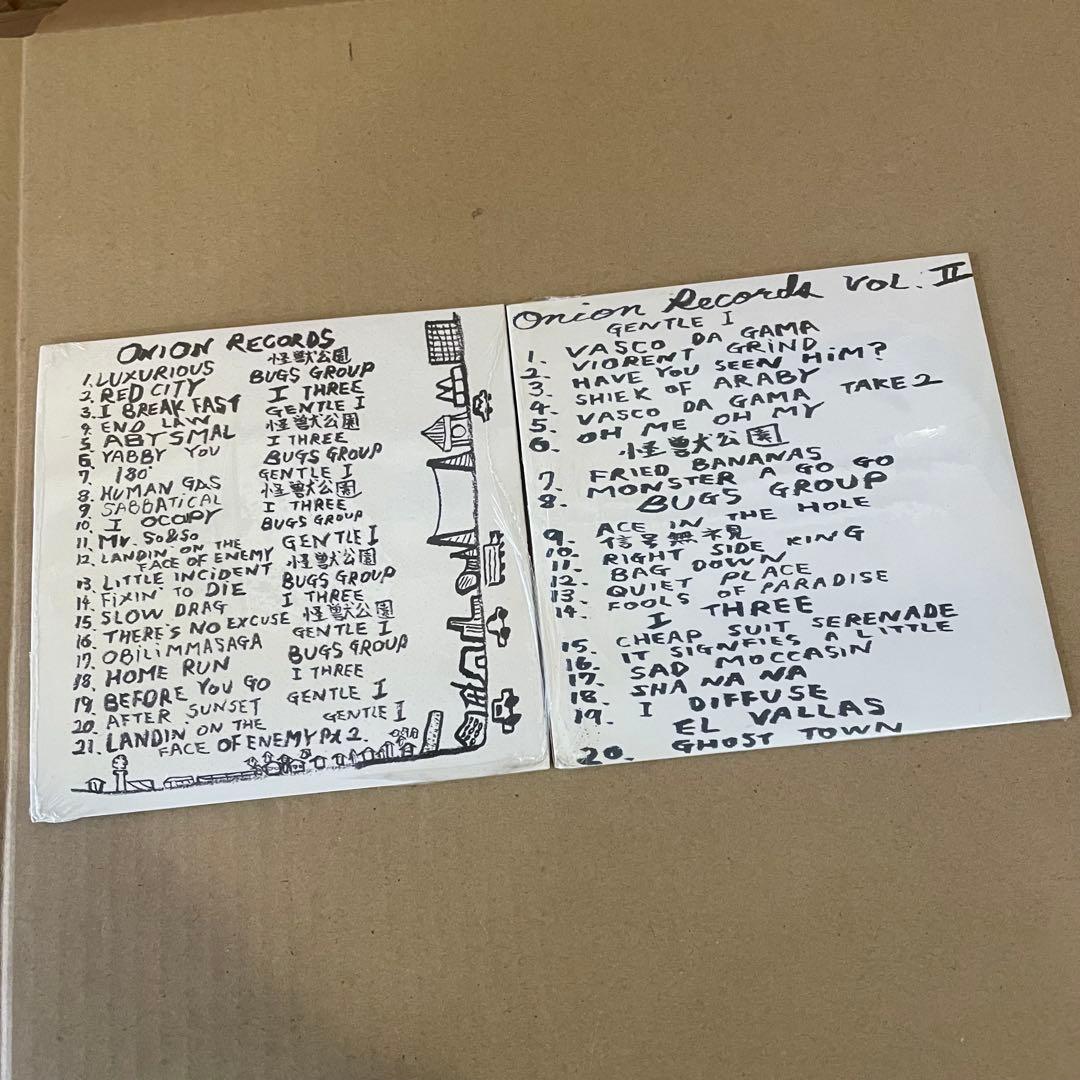 ONION RECORDS
1. LUXURIOUS 怪獣公園
2. RED CITY BUGS GROUP
3. I BREAK FAST I THREE
4. END LAW GENTLE I
5. ABYSMAL 怪獣公園
6. YABBY YOU I THREE
7. 180° BUGS GROUP
8. HUMAN GAS GENTLE I
9. SABBATICAL 怪獣公園
10. I OCAPY I THREE
11. Mr. So&So BUGS GROUP
12. LANDIN' ON THE GENTLE I
FACE OF ENEMY
13. LITTLE INCIDENT 怪獣公園
14. FiXIN' TO DIE BUGS GROUP
15. SLOW DRAG I THREE
16. THERE'S NO EXCUSE 怪獣公園
17. OBiLiMMASAGA GENTLE I
18. HOME RUN BUGS GROUP
19. BEFORE YOU GO I THREE
20. AFTER SUNSET GENTLE I
21. LANDIN' ON THE GENTLE I
FACE OF ENEMY Pt 2.
Onion Records VOL. II
GENTLE I
1. VASCO DA GAMA
2. VIORENT GRIND
3. HAVE YOU SEEN HiM?
4. SHIEK OF ARABY
5. VASCO DA GAMA TAKE 2
6. OH ME OH MY
怪獣公園
7. FRIED BANANAS
8. MONSTER A GO GO
BUGS GROUP
9. ACE IN THE HOLE
10. 信号無視
11. RIGHT SIDE KING
12. BAG DOWN
13. QUIET PLACE
14. FOOLS OF PARADISE
I THREE
15. CHEAP SUIT SERENADE
16. IT SIGNFIES A LITTLE
17. SAD MOCCASIN
18. SHA NA NA
19. I DIFFUSE
EL VALLAS
20. GHOST TOWN